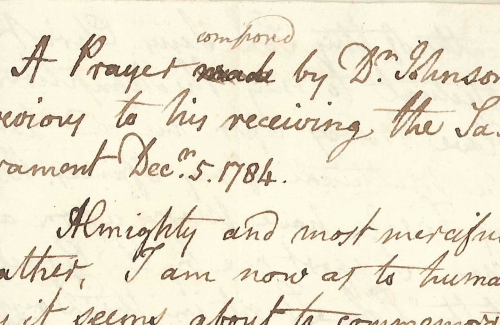 compos'd
A Prayer made by Dr. Johnson
revious to his receiving the Sa-
rament Decr. 5. 1784.
Almighty and most merciful
ather, I am now as to huma
it seems about to commemor